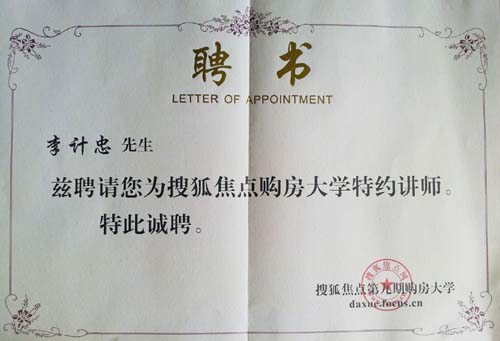 聘书
LETTER OF APPOINTMENT
李计忠 先生
兹聘请您为搜狐焦点购房大学特约讲师。
特此诚聘。
搜狐焦点第九期购房大学
daxue.focus.cn
搜狐焦点网